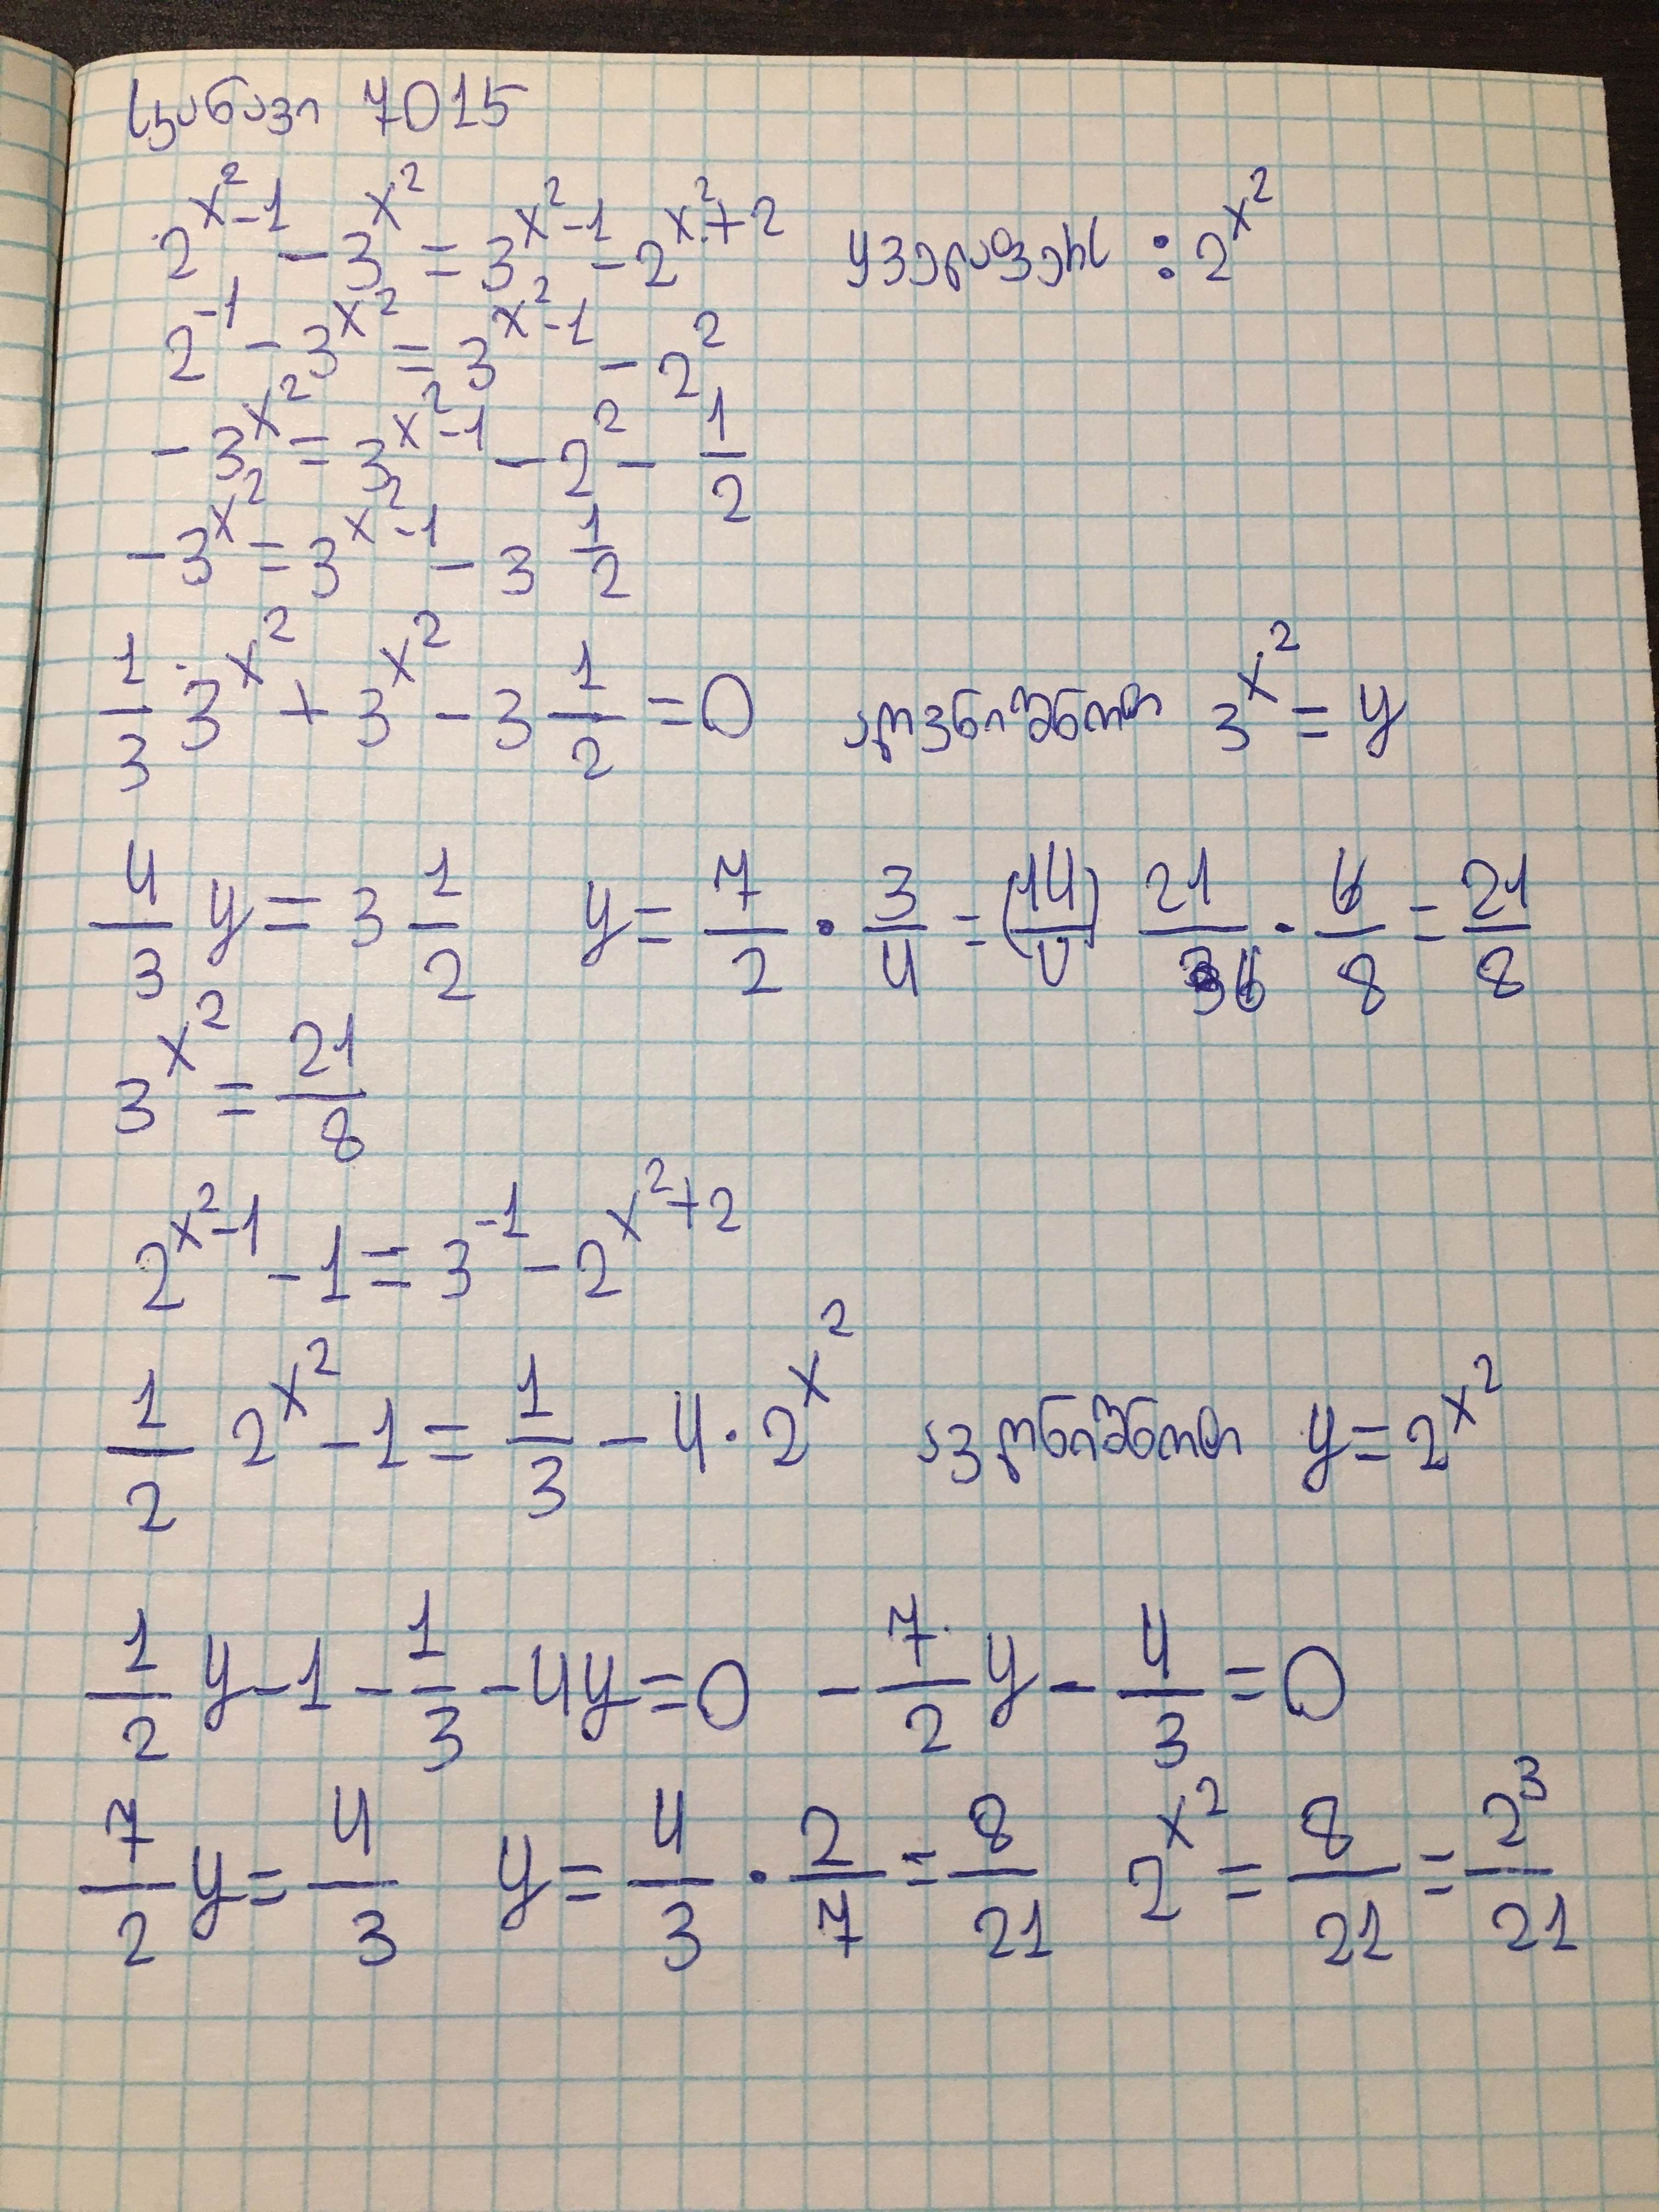 სკანავი 7015
2^{x^2-1} - 3^{x^2} = 3^{x^2-1} - 2^{x^2+2} ყველაფერს : 2^{x^2}
2^{-1} - 3^{x^2} = 3^{x^2-1} - 2^2
- 3^{x^2} = 3^{x^2-1} - 2^2 - 1/2
- 3^{x^2} = 3^{x^2-1} - 3 1/2
1/3 · 3^{x^2} + 3^{x^2} - 3 1/2 = 0 აღვნიშნოთ 3^{x^2} = y
4/3 y = 3 1/2 y = 7/2 · 3/4 = (14/4) 21/6 · 6/8 = 21/8
3^{x^2} = 21/8
2^{x^2-1} - 1 = 3^{-1} - 2^{x^2+2}
1/2 2^{x^2} - 1 = 1/3 - 4 · 2^{x^2} ავღნიშნოთ y = 2^{x^2}
1/2 y - 1 - 1/3 - 4y = 0 - 7/2 y - 4/3 = 0
7/2 y = 4/3 y = 4/3 · 2/7 = 8/21 2^{x^2} = 8/21 = 2^3/21